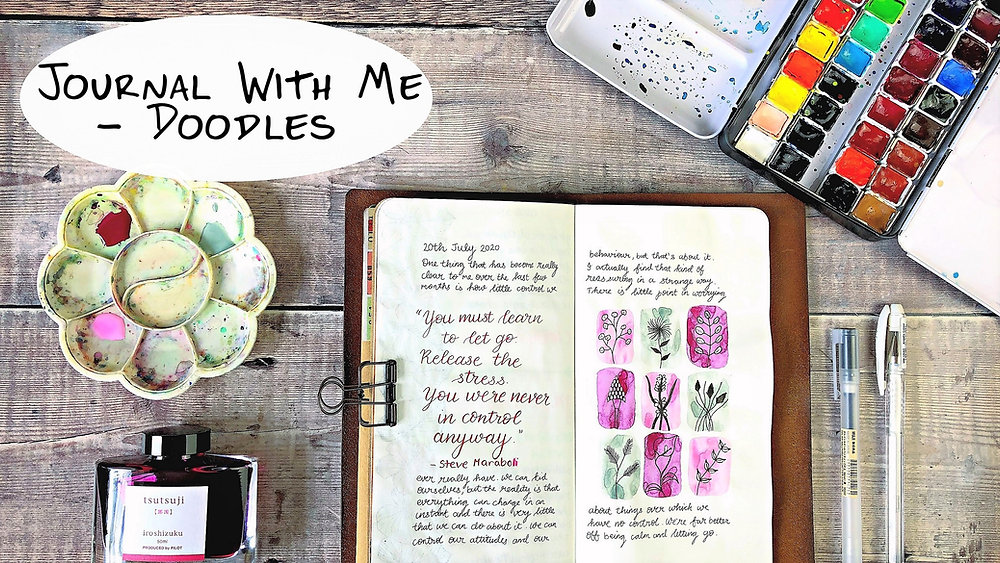 JOURNAL WITH ME
- DOODLES
20th July, 2020
One thing that has become really
clear to me over the last few
months is how little control we
"You must learn
to let go.
Release the
stress.
You were never
in control
anyway."
- Steve Maraboli
ever really have. We can kid
ourselves, but the reality is that
everything can change in an
instant and there is very little
that we can do about it. We can
control our attitudes and our
behaviour, but that's about it.
I actually find that kind of
reassuring in a strange way.
There is little point in worrying
about things over which we
have no control. We're far better
off being calm and letting go.
tsutsuji
iroshizuku
50ml
PRODUCED by PILOT